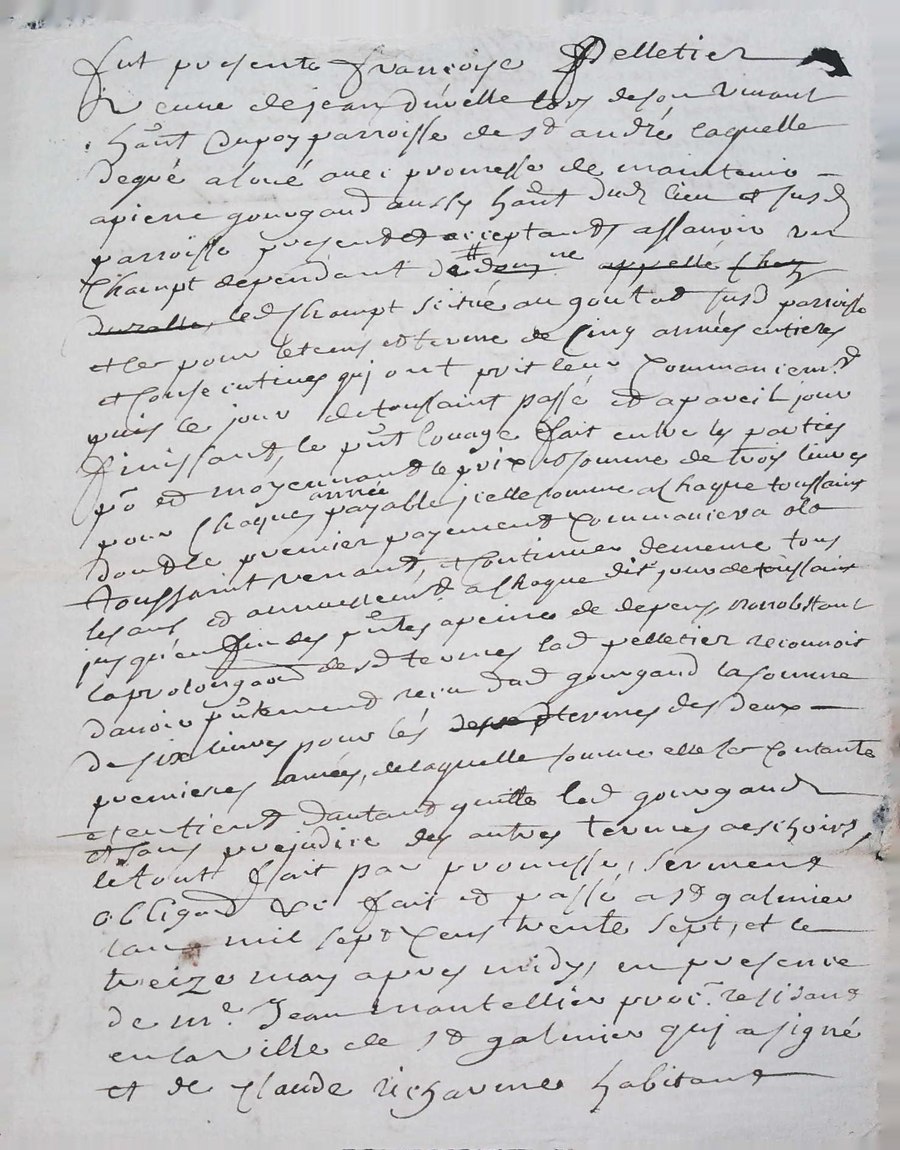 fut presente françoise Pelletier
veuve de jean duvelle lors de son vivant
haūt Dupoy parroisse de st andré laquelle
de gré a loué avec promesse de maintenir
a pierre gourgaud aussy haūt dud lieu et susd
parroisse present et acceptant assavoir un
Champt dependant de appellé chez
led Champt scitué au susd parroisse
et ce pour le tems et terme de Cinq années entieres
et Consecutives qui ont prit leur Commancemt
puis le jour de toussaint passé et a pareil jour
finissant, le pūt louage fait entre les parties
po et moyennant le prix et somme de trois livres
pour Chaques année payable icelle somme a Chaque toussaint
dont le premier payement Commancera a la
toussaint venant, et Continuer de meme tous
les ans et annuellement a Chaque dit jour de toussaint
jusqu'en fin des pūtes a peine de depens nonobstant
la prolongaōn desd termes lad pelletier reconnoit
d'avoir pūtement receu dud gourgaud la somme
de six livres pour les termes des deux
premieres années, de laquelle somme elle se Contante
et en tient d'autant quitte led gourgaud
et sans prejudice des autres termes a eschoirs
le tout fait par promesse, serment
obligaōn &c fait et passé a st galmier
lan mil sept Cens trente sept, et le
treize may apres midy, en presence
de mr. Jean mantellier proc. residant
en la ville de st galmier qui a signé
et de Claude richarme habitant